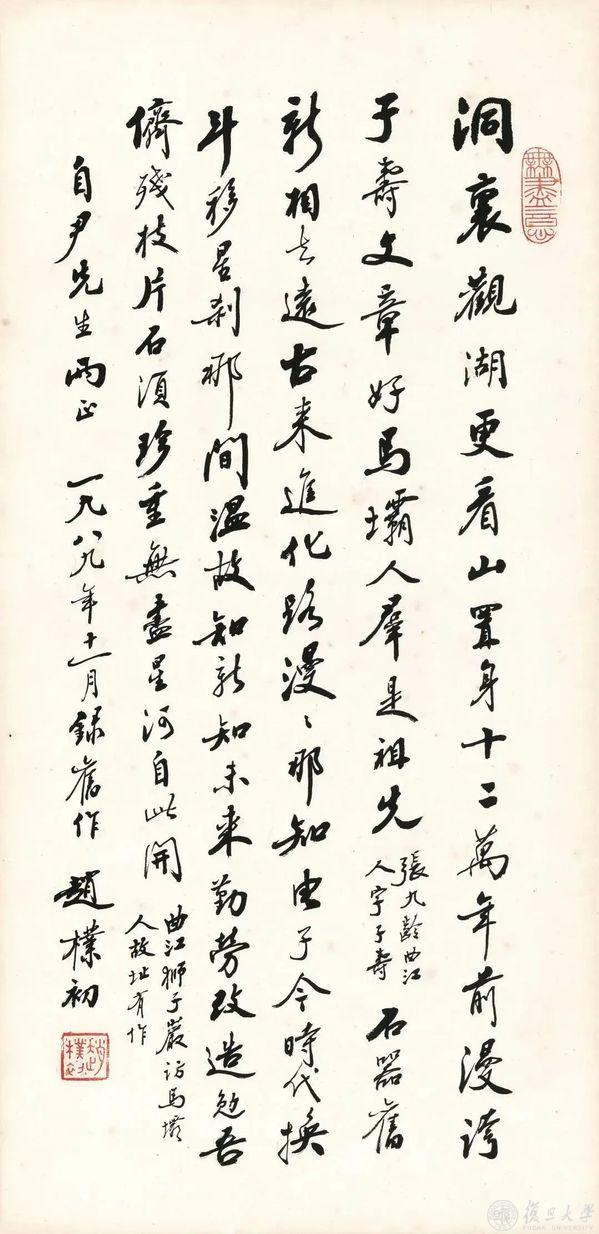 無盡意
洞裏觀湖更看山置身十二萬年前漫誇
子壽文章好馬壩人羣是祖先
張九齡曲江
人字子壽
石器舊
新相去遠古來進化路漫〻那知电子今時代換
斗移星刹那間温故知新知未來勤勞改造勉吾
儕殘枝片石須珍重無盡星河自此開
曲江獅子巖訪馬壩
人故址有作
自尹先生兩正 一九八九年十一月録舊作 趙樸初
趙樸初
復旦大學
FUDAN UNIVERSITY